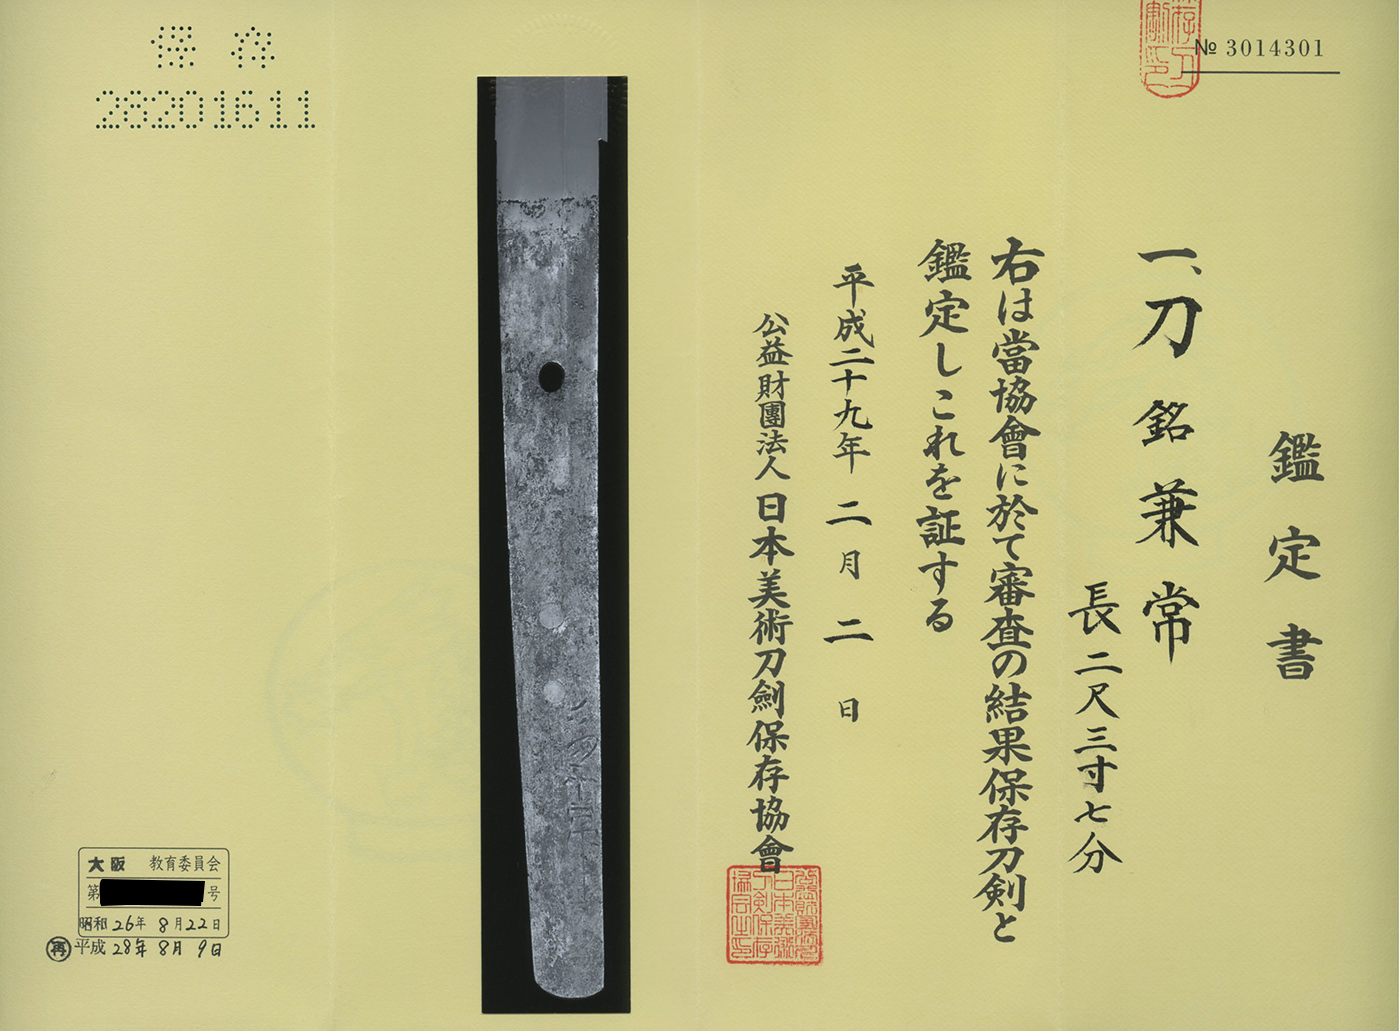 № 3014301
鑑定書
一、刀 銘 兼常
長二尺三寸七分
右は當協會に於て審査の結果保存刀剣と
鑑定しこれを証する
平成二十九年二月二日
公益財團法人日本美術刀劍保存協會
保存
28201611
大阪 教育委員会
第 号
昭和26年8月22日
再 平成28年8月9日